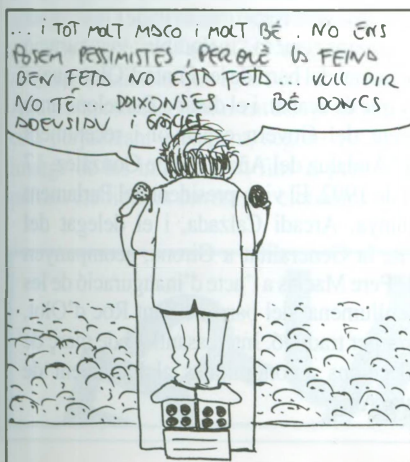 ... i TOT MOLT MACO i MOLT BÉ. NO ENS
POSEM PESSIMISTES, PERQUÈ LA FEINA
BEN FETA NO ESTÀ FETA... VULL DIR
NO TÉ ... BÉ DONCS
ADEUSIAU i GRÀCIES